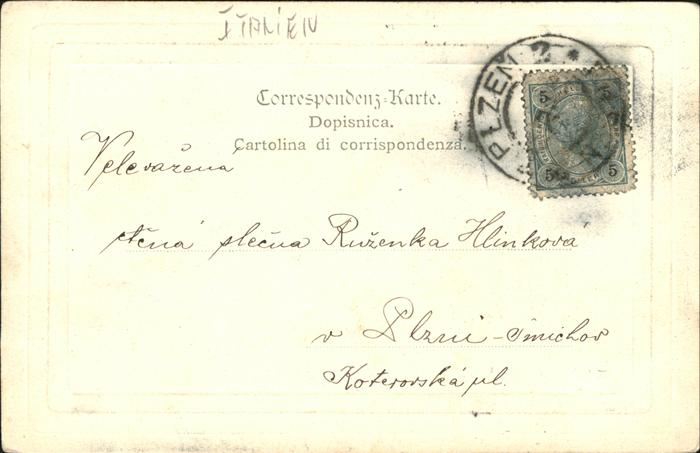 ITALIEN
Correspondenz-Karte.
Dopisnica.
Cartolina di corrispondenza.
PLZEŇ 2 *
5 5
5 5
Velevážená
ctěná slečna Růženka Hlinková
v Plzni - Smíchov
Koterovská ul.